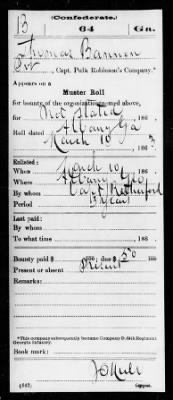 (Confederate.)
B 64 Ga.
Thomas Bannon
Pvt, Capt. Pulk Robinson's Company.*
Appears on a
Muster Roll
for bounty of the organization named above,
for Not Stated, 186 .
Roll dated Albany Ga
March 10 186 3
Enlisted:
When March 10, 186 .
Where Albany Geo
By whom Capt Rutherford
Period 3 years
Last paid:
By whom
To what time , 186 .
Bounty paid $ 100; due $ 50 100
Present or absent Present
Remarks:
*This company subsequently became Company D, 64th Regiment
Georgia Infantry.
Book mark:
(642) Copyist.